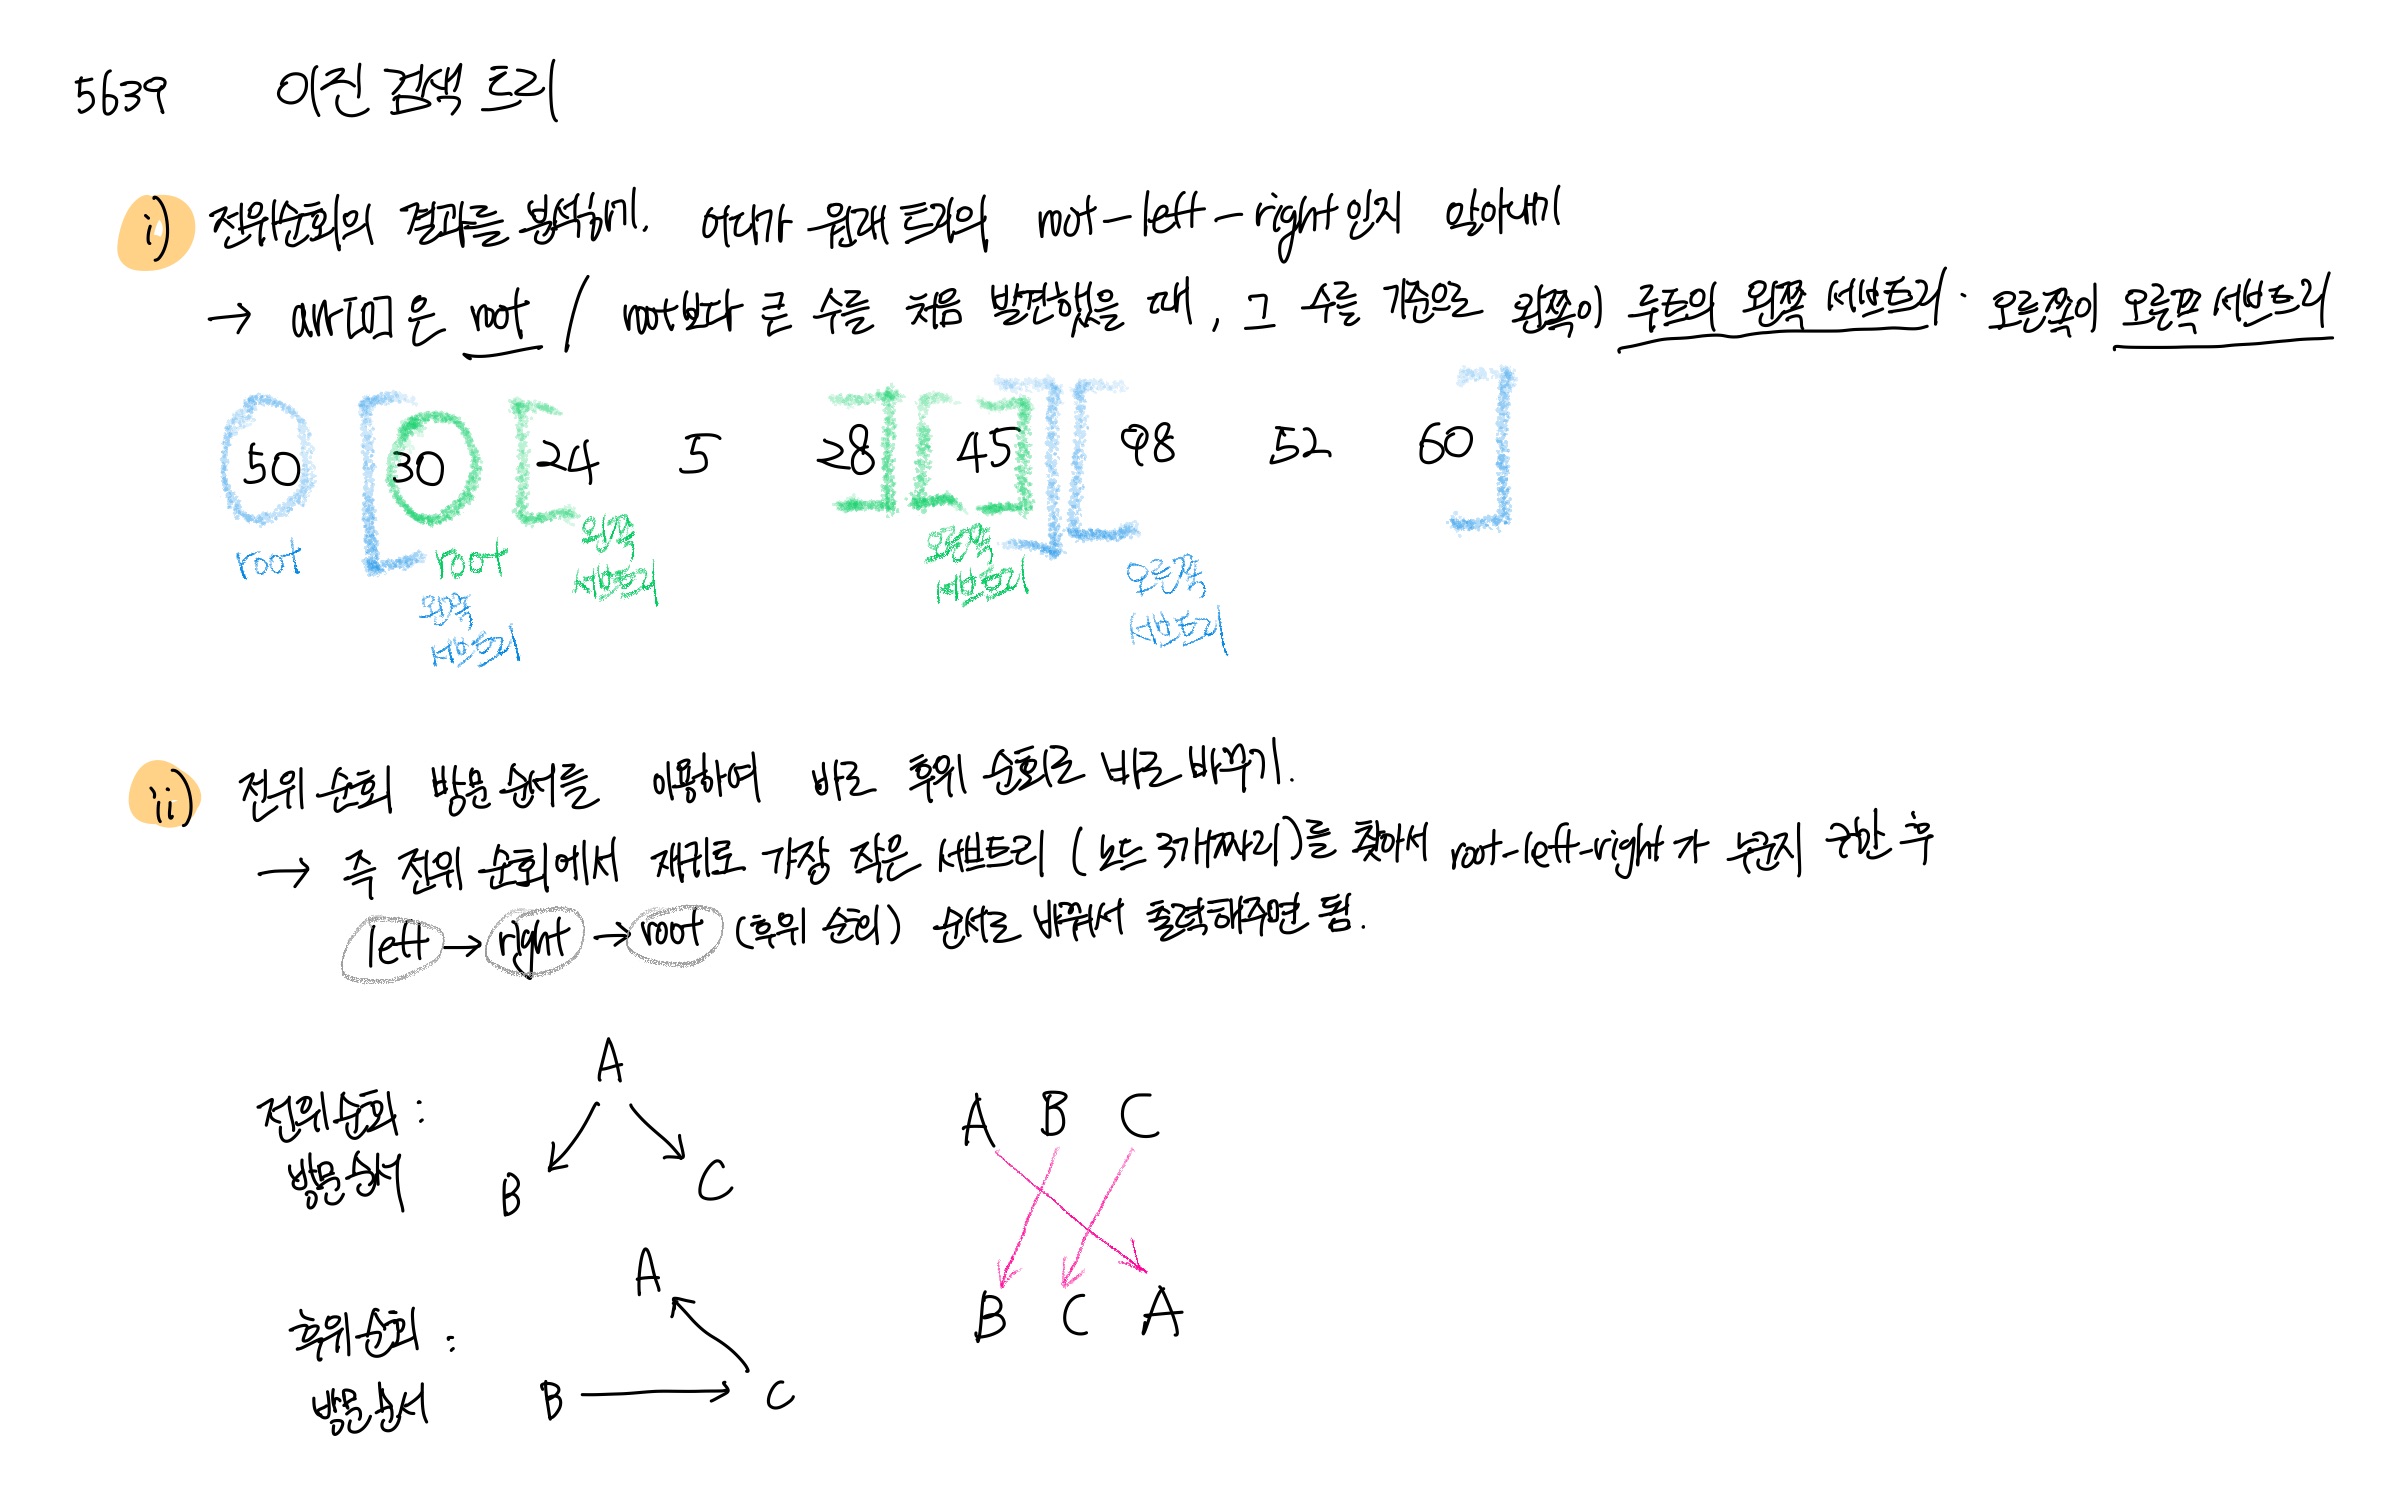 5639 이진 검색 트리
i) 전위순회의 결과를 분석하기. 어디가 원래 트리의 root-left-right인지 알아내기
→ arr[0]은 root / root보다 큰 수를 처음 발견했을 때, 그 수를 기준으로 왼쪽이 루트의 왼쪽 서브트리. 오른쪽이 오른쪽 서브트리
50 30 24 5 28 45 98 52 60
root
root
왼쪽
서브트리
왼쪽
서브트리
오른쪽
서브트리
오른쪽
서브트리
ii) 전위 순회 방문 순서를 이용하여 바로 후위 순회로 바로 바꾸기.
→ 즉 전위 순회에서 재귀로 가장 작은 서브트리 (노드 3개짜리)를 찾아서 root-left-right가 누군지 구한 후
left → right → root (후위 순회) 순서로 바꿔서 출력해주면 됨.
전위순회 :
방문순서
A
B C
A B C
B C A
후위순회 :
방문순서
A
B → C